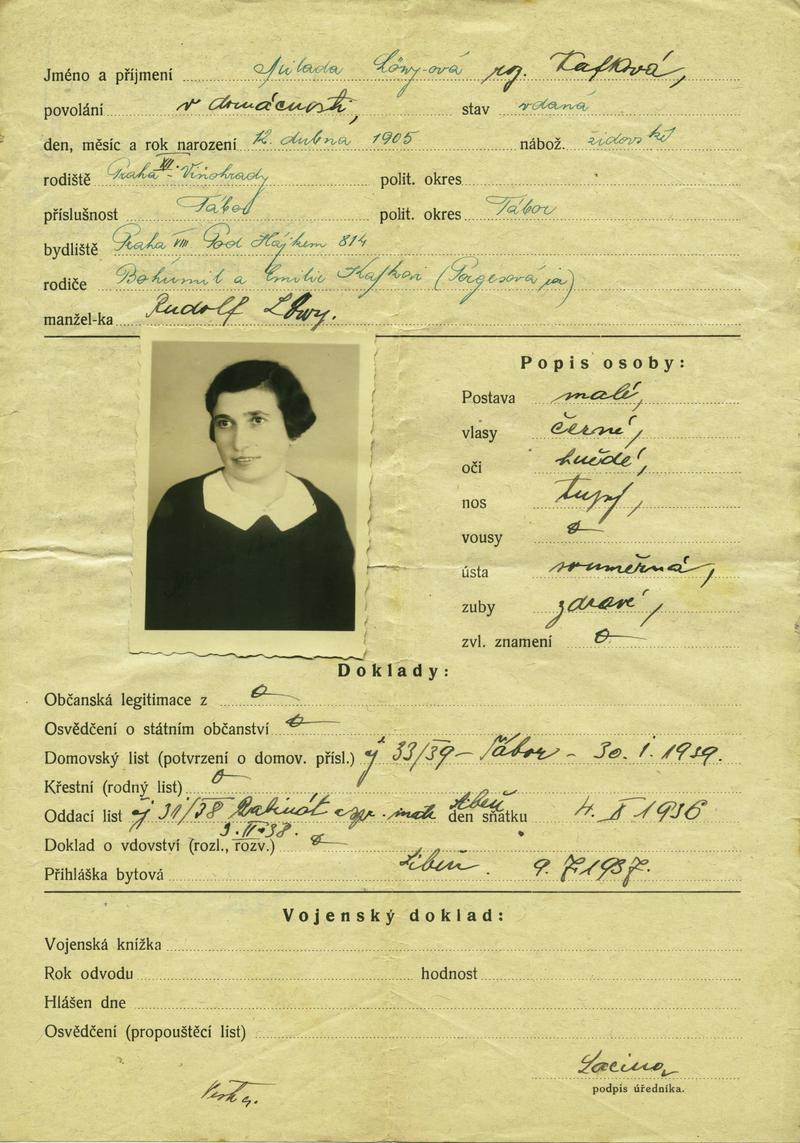 Jméno a příjmení Milada Löwy-ová roz. Kafková,
povolání v domácnosti, stav vdaná
den, měsíc a rok narození 12. dubna 1905 nábož. židovské
rodiště Praha XII.- Vinohrady polit. okres
příslušnost Tábor polit. okres Tábor
bydliště Praha VIII. Pod Hájkem 814
rodiče Bohumil a Emilie Kafkovi (Porgesová)
manžel-ka Rudolf Löwy.
Popis osoby:
Postava malá,
vlasy černé,
oči hnědé,
nos tupý,
vousy
ústa souměrná,
zuby zdravé,
zvl. znamení
Doklady:
Občanská legitimace z
Osvědčení o státním občanství
Domovský list (potvrzení o domov. přísl.) čj 33/39 – Tábor – 30. I. 1939.
Křestní (rodný list)
Oddací list čj 31/38 Rabinát Libeň den sňatku 4. X 1936
3. II. 38.
Doklad o vdovství (rozl., rozv.)
Přihláška bytová Libeň. 9. 7. 1937.
Vojenský doklad:
Vojenská knížka
Rok odvodu hodnost
Hlášen dne
Osvědčení (propouštěcí list)
podpis úředníka.